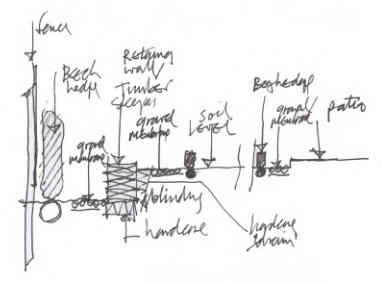 fence
Beech
hedge
Retaining
wall/
Timber
sleepers
gravel
membrane
gravel
membrane
SOIL
LEVEL
Box hedge
gravel/
membrane
patio
blinding
hardcore
hardcore
drain